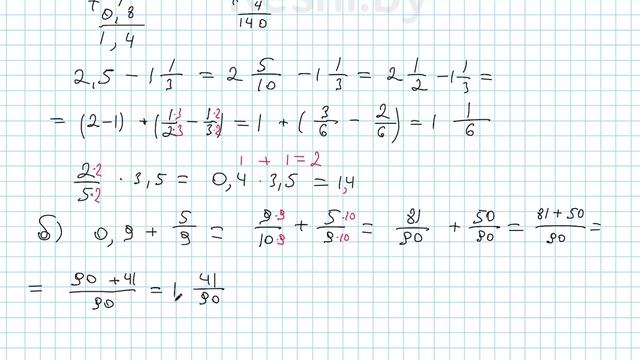 Reshi.by
0,8 4/140
1,4
2,5 - 1 1/3 = 2 5/10 - 1 1/3 = 2 1/2 - 1 1/3 =
= (2-1) + (1·3/2·3 - 1·2/3·2) = 1 + (3/6 - 2/6) = 1 1/6
1 + 1 = 2
2·2/5·2 · 3,5 = 0,4 · 3,5 = 1,4
б) 0,9 + 5/9 = 9·9/10·9 + 5·10/9·10 = 81/90 + 50/90 = 81+50/90 =
= 90+41/90 = 1, 41/90